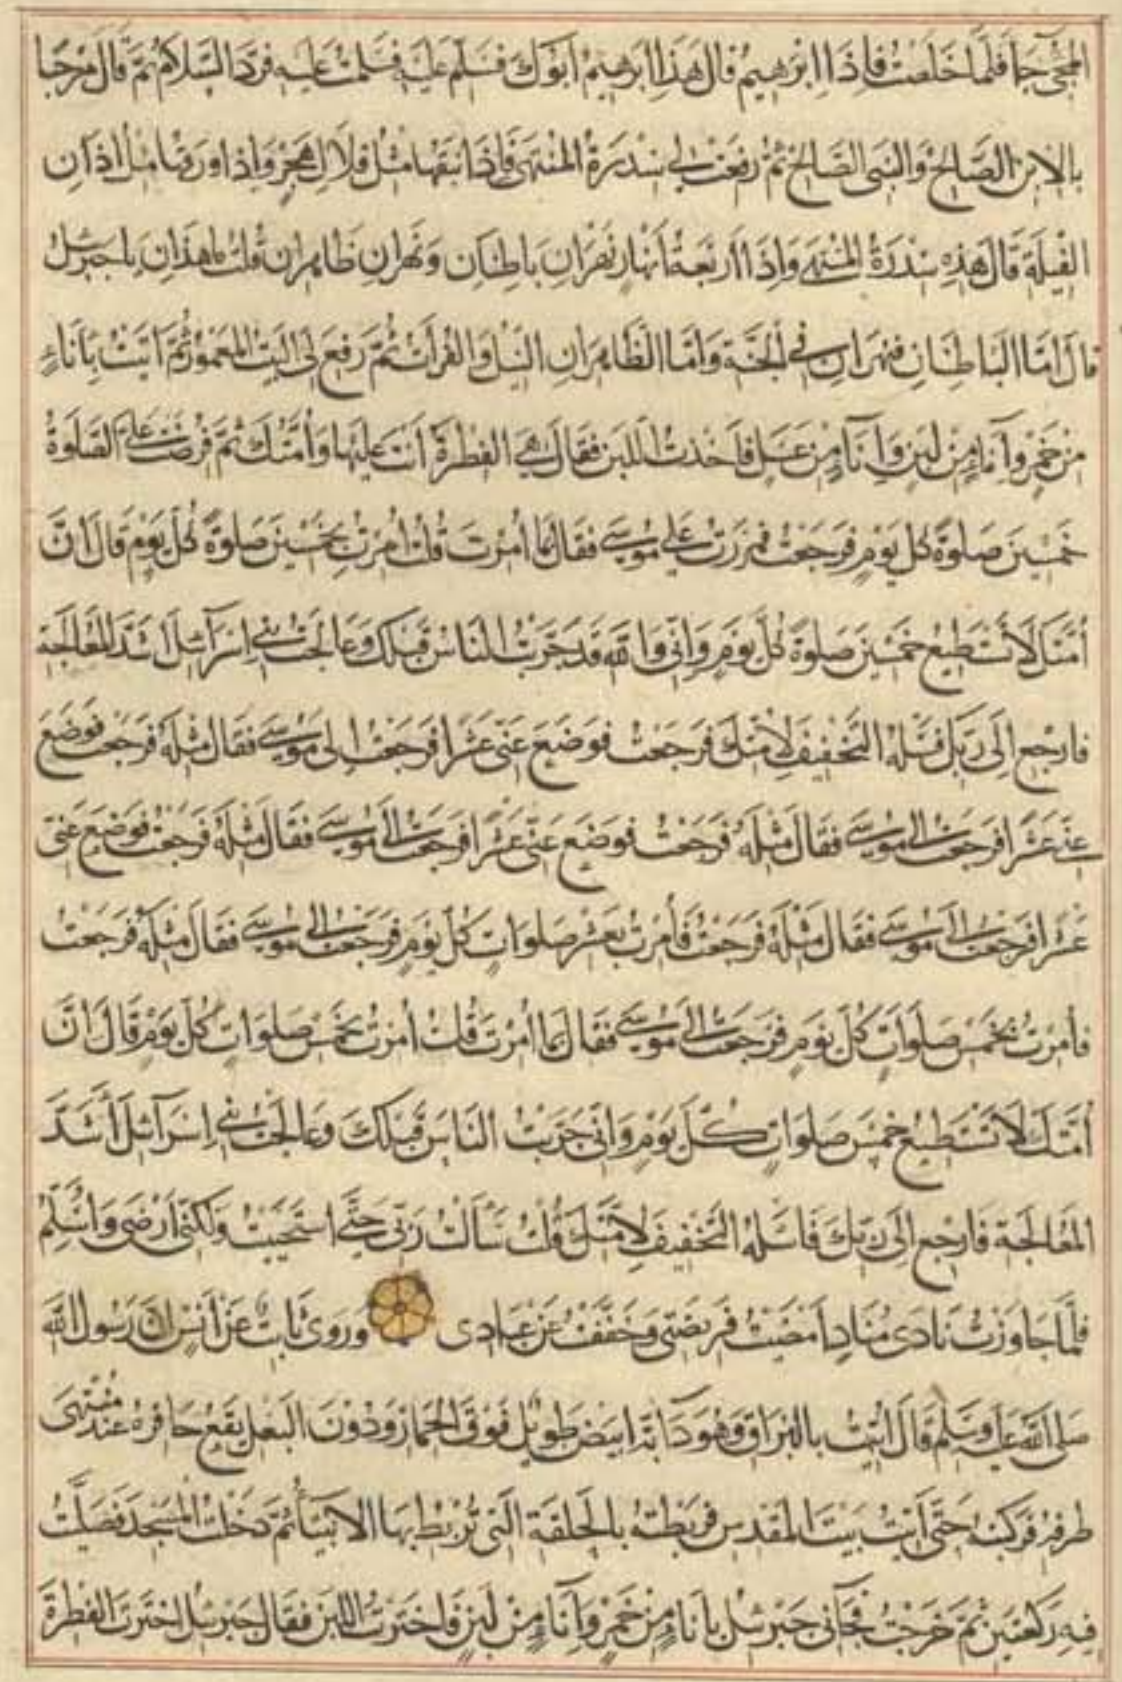 المجئ جاء فلما خلصت فاذا ابرهيم قال هذا ابرهيم ابوك فسلم عليه فسلمت عليه فرد السلام ثم قال مرحبا
بالابن الصالح والنبى الصالح ثم رفعت لى سدرة المنتهى فاذا نبقها مثل قلال هجر واذا ورقها مثل اذان
الفيلة قال هذه سدرة المنتهى واذا اربعة انهار نهران باطنان ونهران ظاهران قلت ما هذان يا جبرئيل
قال اما الباطنان فنهران في الجنة واما الظاهران النيل والفرات ثم رفع لى البيت المعمور ثم اتيت باناء
من خمر واناء من لبن واناء من عسل فاخذت اللبن فقال هى الفطرة انت عليها وامتك ثم فرضت على الصلوة
خمسين صلوة كل يوم فرجعت فمررت على موسى فقال بما امرت قلت امرت بخمسين صلوة كل يوم قال ان
امتك لا تستطيع خمسين صلوة كل يوم وانى والله قد جربت الناس قبلك وعالجت بنى اسرآئيل اشد المعالجة
فارجع الى ربك فسله التخفيف لامتك فرجعت فوضع عنى عشرا فرجعت الى موسى فقال مثله فرجعت فوضع
عنى عشرا فرجعت الى موسى فقال مثله فرجعت فوضع عنى عشرا فرجعت الى موسى فقال مثله فرجعت فوضع عنى
عشرا فرجعت الى موسى فقال مثله فرجعت فأمرت بعشر صلوات كل يوم فرجعت الى موسى فقال مثله فرجعت
فأمرت بخمس صلوات كل يوم فرجعت الى موسى فقال بما امرت قلت امرت بخمس صلوات كل يوم قال ان
امتك لا تستطيع خمس صلوات كل يوم وانى جربت الناس قبلك وعالجت بنى اسرآئيل اشد
المعالجة فارجع الى ربك فاسئله التخفيف لامتك قلت سألت ربى حتى استحييت ولكنى ارضى واسلم
فلما جاوزت نادى مناد امضيت فريضتى وخففت عن عبادى وروى ثابت عن انس ان رسول الله
صلى الله عليه وسلم قال اتيت بالبراق وهو دابة ابيض طويل فوق الحمار ودون البغل يقع حافره عند منتهى
طرفه فركبته حتى اتيت بيت المقدس فربطته بالحلقة التى تربط بها الانبيآء ثم دخلت المسجد فصليت
فيه ركعتين ثم خرجت فجآنى جبرئيل باناء من خمر واناء من لبن فاخترت اللبن فقال جبرئيل اخترت الفطرة